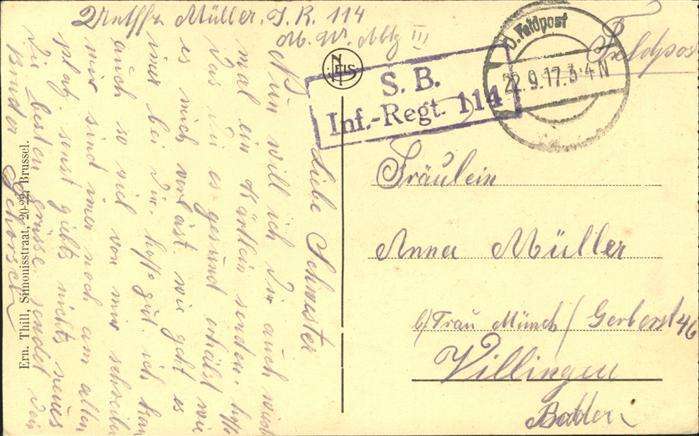 Müller, I. R. 114
M. W. Abtg III
S. B.
Inf.-Regt. 114
D. Feldpost
22.9.17.3-4N
Feldpost
NELS
Liebe Schwester
Nun will ich Dir auch wieder
mal ein Kärtlein senden, hoffe
das Du es gesund erhälst wie
es mich verläst. wie geht es
immer bei Dir, hoffe gut, ich kann
auch so viel von mir schreiben
wir sind immer noch am alten
platz. sonst giebts nichts neues
Die besten Grüsse sendet Dein
Bruder Schorsch
Ern. Thill, Simonisstraat, 20-22, Brussel.
Fräulein
Anna Müller
b/Frau Münch / Gerberst 46
Villingen
Baden